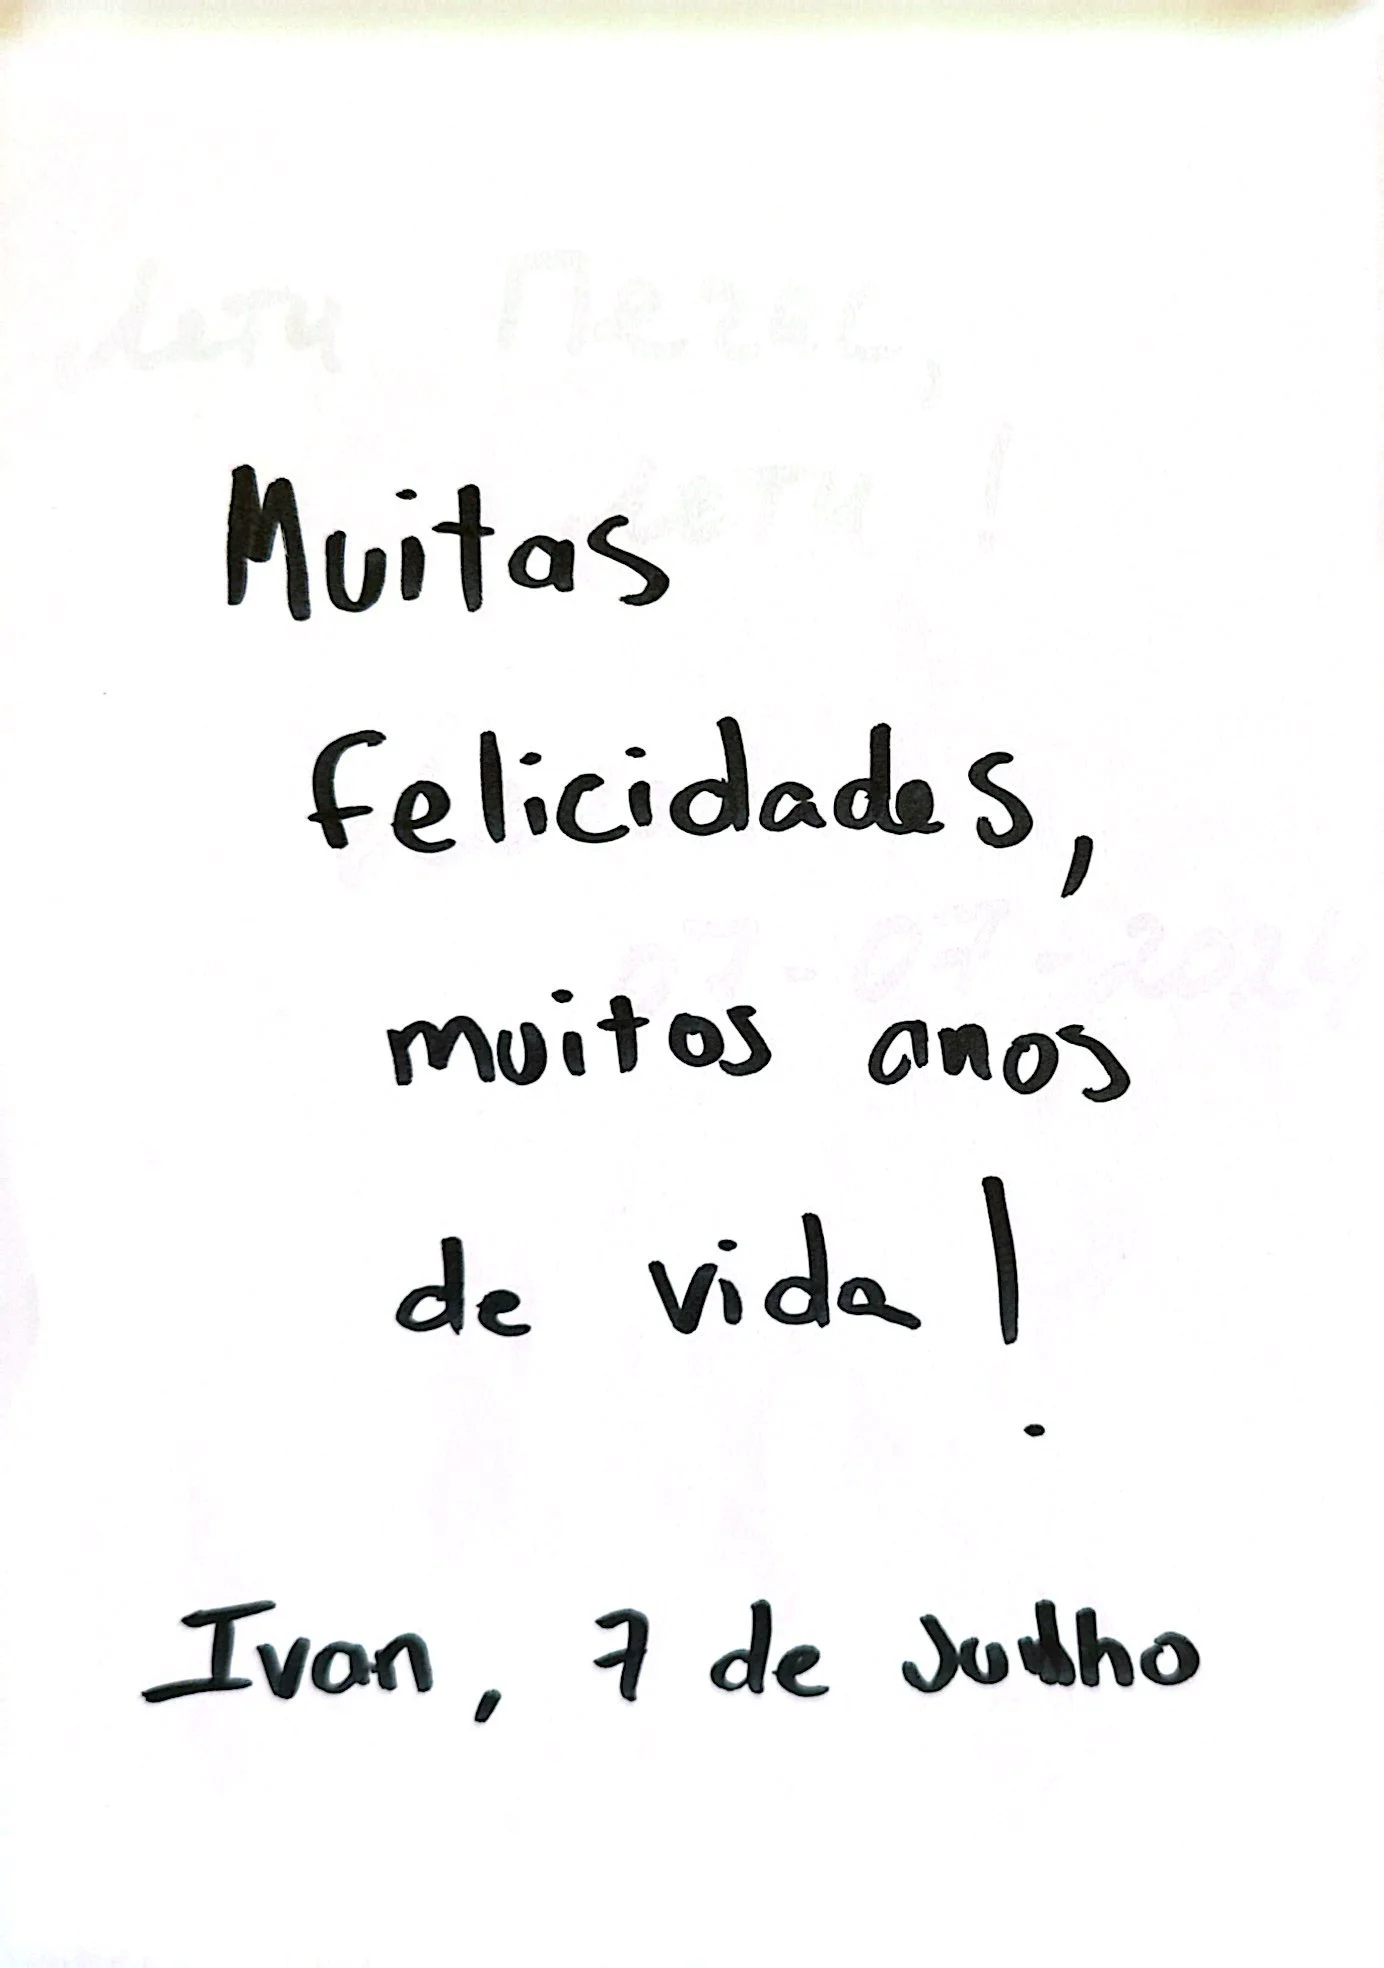 Muitas
felicidades,
muitos anos
de vida!
Ivan, 7 de Julho